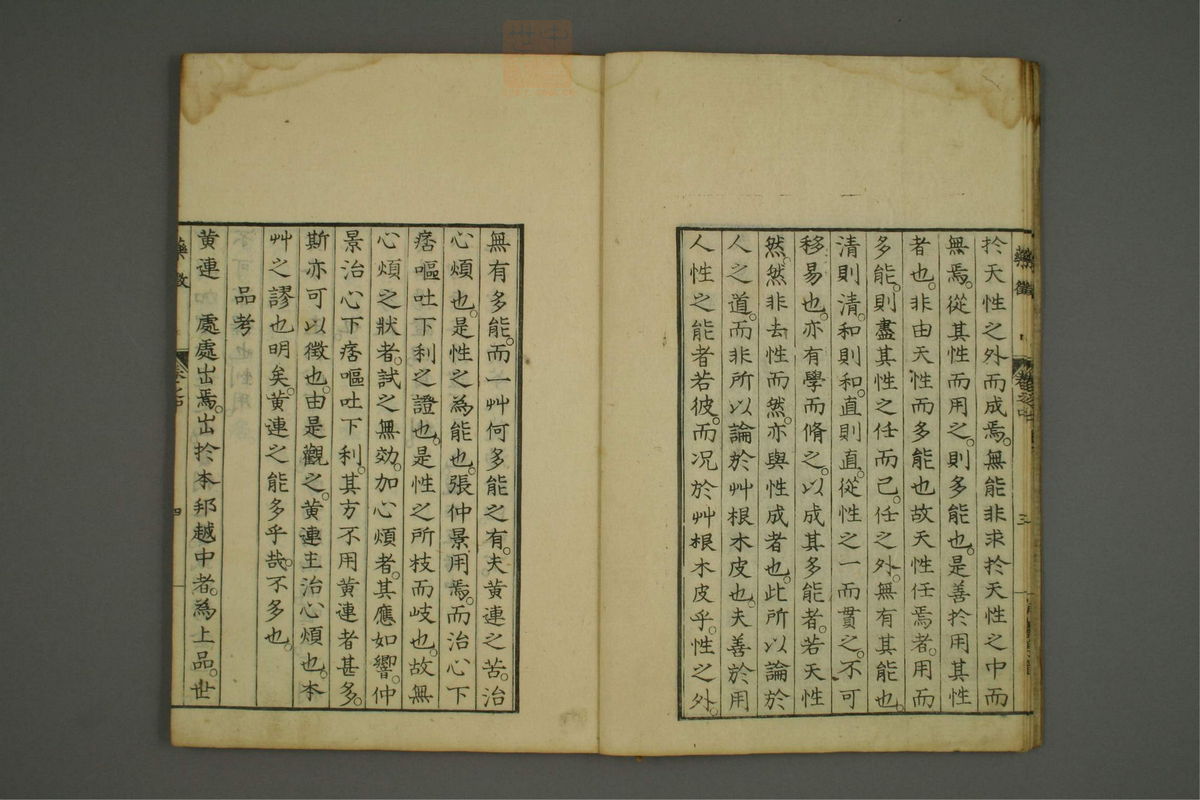 於天性之外而成焉。無能非求於天性之中而
無焉。從其性而用之。則多能也。是善於用其性
者也。非由天性而多能也故天性任焉者。用而
多能。則盡其性之任而已。任之外。無有其能也。
清則清。和則和。直則直。從性之一而貫之。不可
移易也。亦有學而脩之。以成其多能者。若天性
然。然非去性而然。亦與性成者也。此所以論於
人之道。而非所以論於艸根木皮也。夫善於用
人性之能者若彼。而況於艸根木皮乎。性之外。
無有多能。而一艸何多能之有。夫黄連之苦。治
心煩也。是性之為能也。張仲景用焉。而治心下
痞嘔吐下利之證也。是性之所枝而岐也。故無
心煩之狀者。試之無効。加心煩者。其應如響。仲
景治心下痞嘔吐下利。其方不用黄連者甚多。
斯亦可以徵也。由是觀之。黄連主治心煩也。本
艸之謬也明矣。黄連之能多乎哉。不多也。
品考
黄連 處處出焉。出於本邦越中者。為上品。世
藥徵
三
藥徵
四